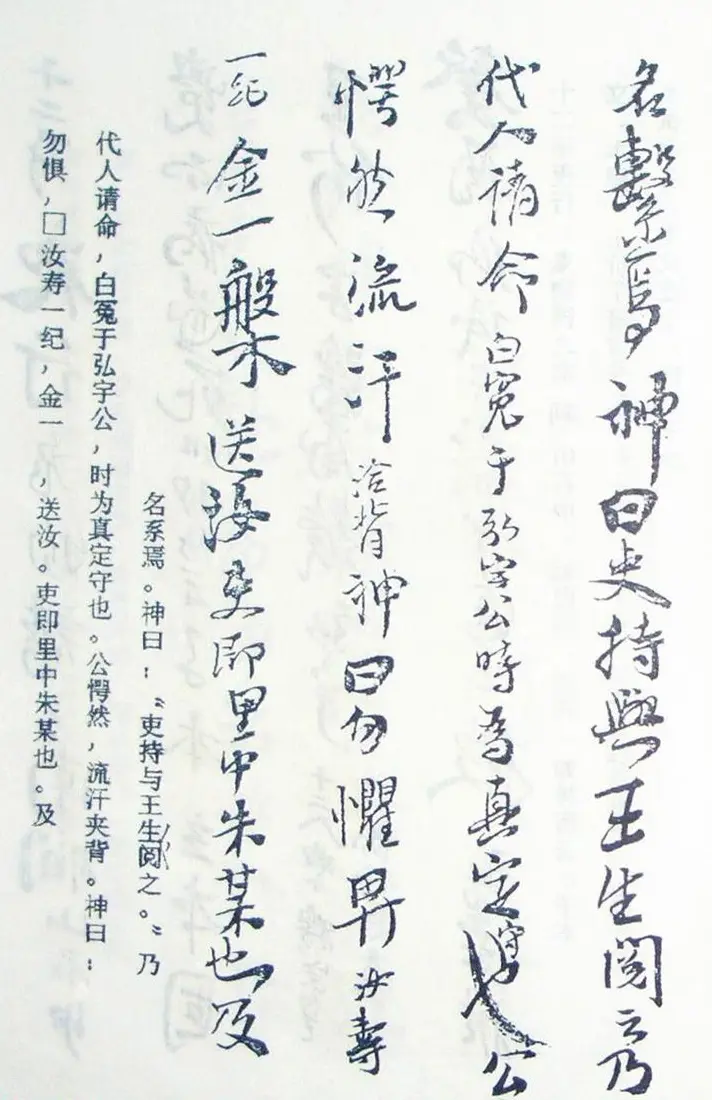 名繫焉神曰吏持與王生閱之乃
代人請命白冤于弘宇公時為真定守也公
愕然流汗浹背神曰勿懼畀汝壽
一紀金一槃送汝吏即里中朱某也及
名系焉。神曰：“吏持与王生阅之。”乃
代人请命，白冤于弘宇公，时为真定守也。公愕然，流汗夹背。神曰：
勿惧，□汝寿一纪，金一　，送汝。吏即里中朱某也。及